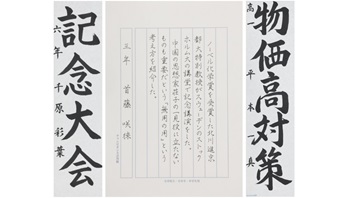 物価高対策
高一 平木一真
ノーベル化学賞を受賞した北川進京
都大特別教授がスウェーデンのストック
ホルムの講堂で記念講演をした。
中国の思想家荘子の「一見役に立たない
ものも重要だという「無用の用」という
考え方を紹介した。
三年 首藤咲棟
記念大会
六年 千原彩葉